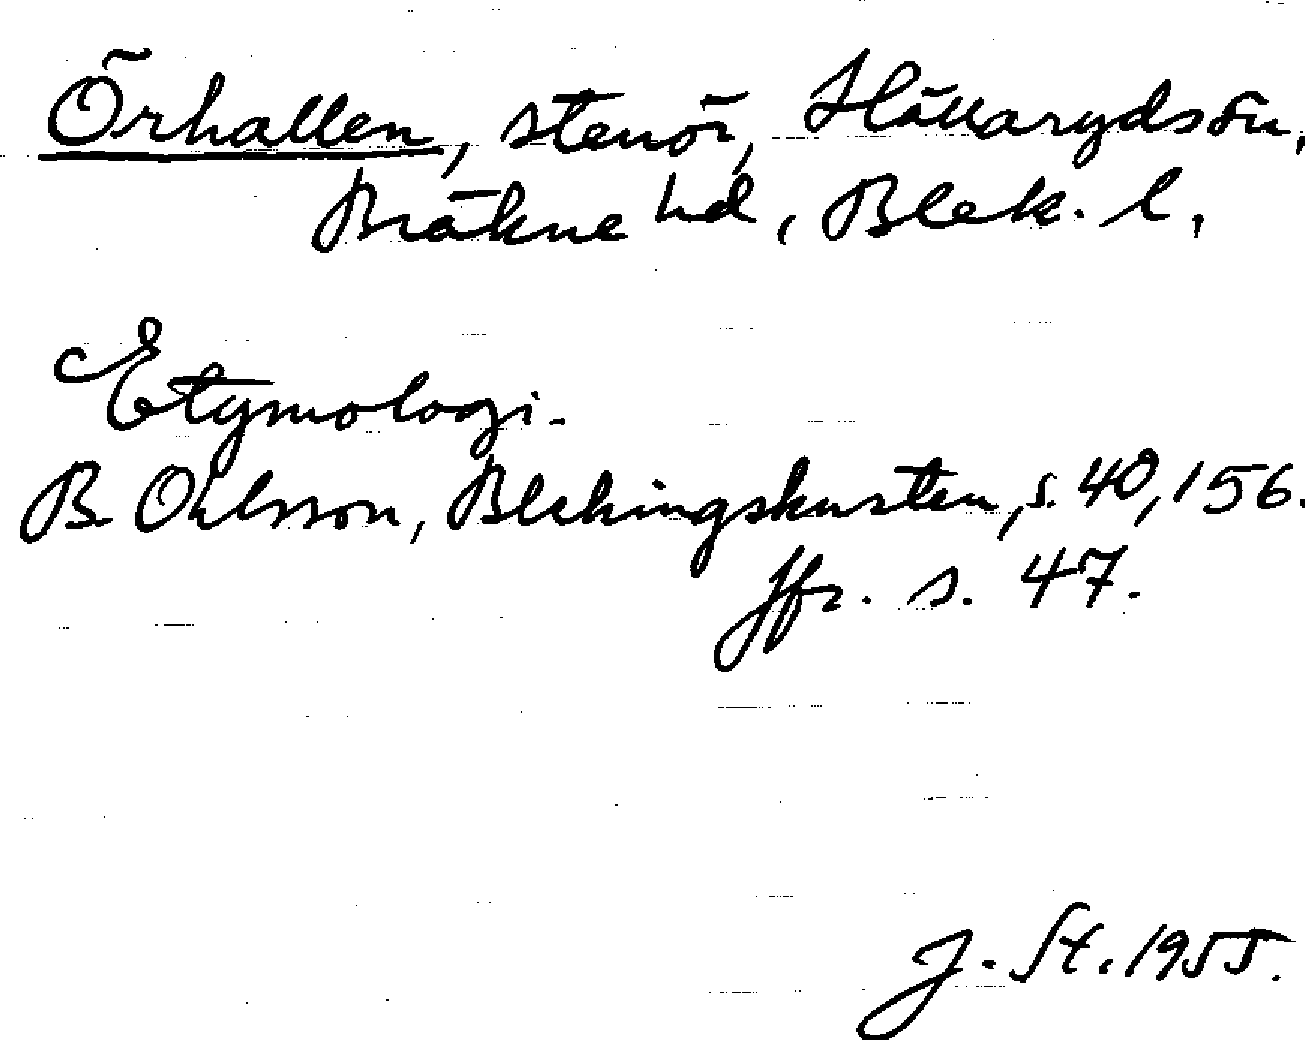 Örhallen, stenör, Hällaryds sn,
Bräkne hd, Blek. l.
Etymologi.
B. Ohlsson, Blekingskusten, s. 40, 156.
Jfr. s. 47.
J. St. 1955.